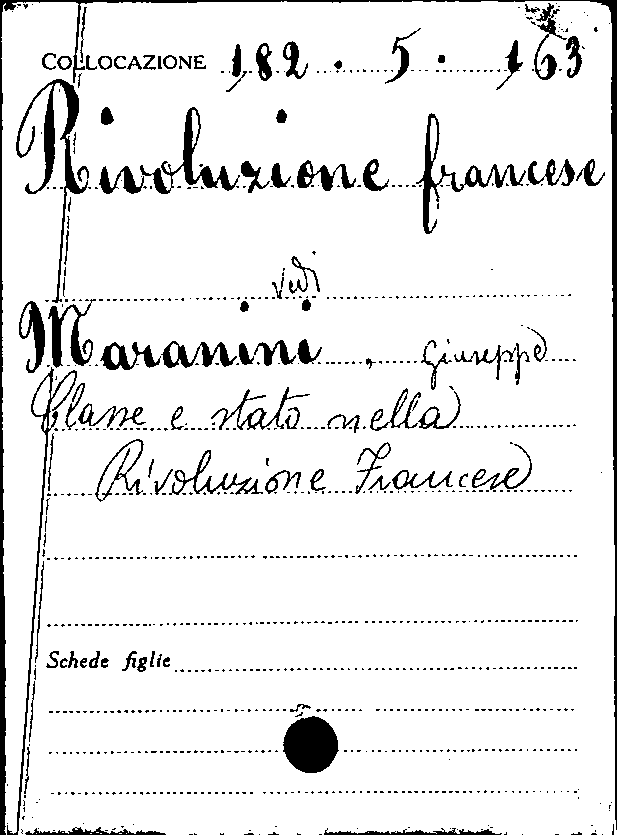 COLLOCAZIONE 182 . 5 . 163
Rivoluzione francese
vedi
Maranini, Giuseppe
Classe e stato nella
Rivoluzione Francese
Schede figlie